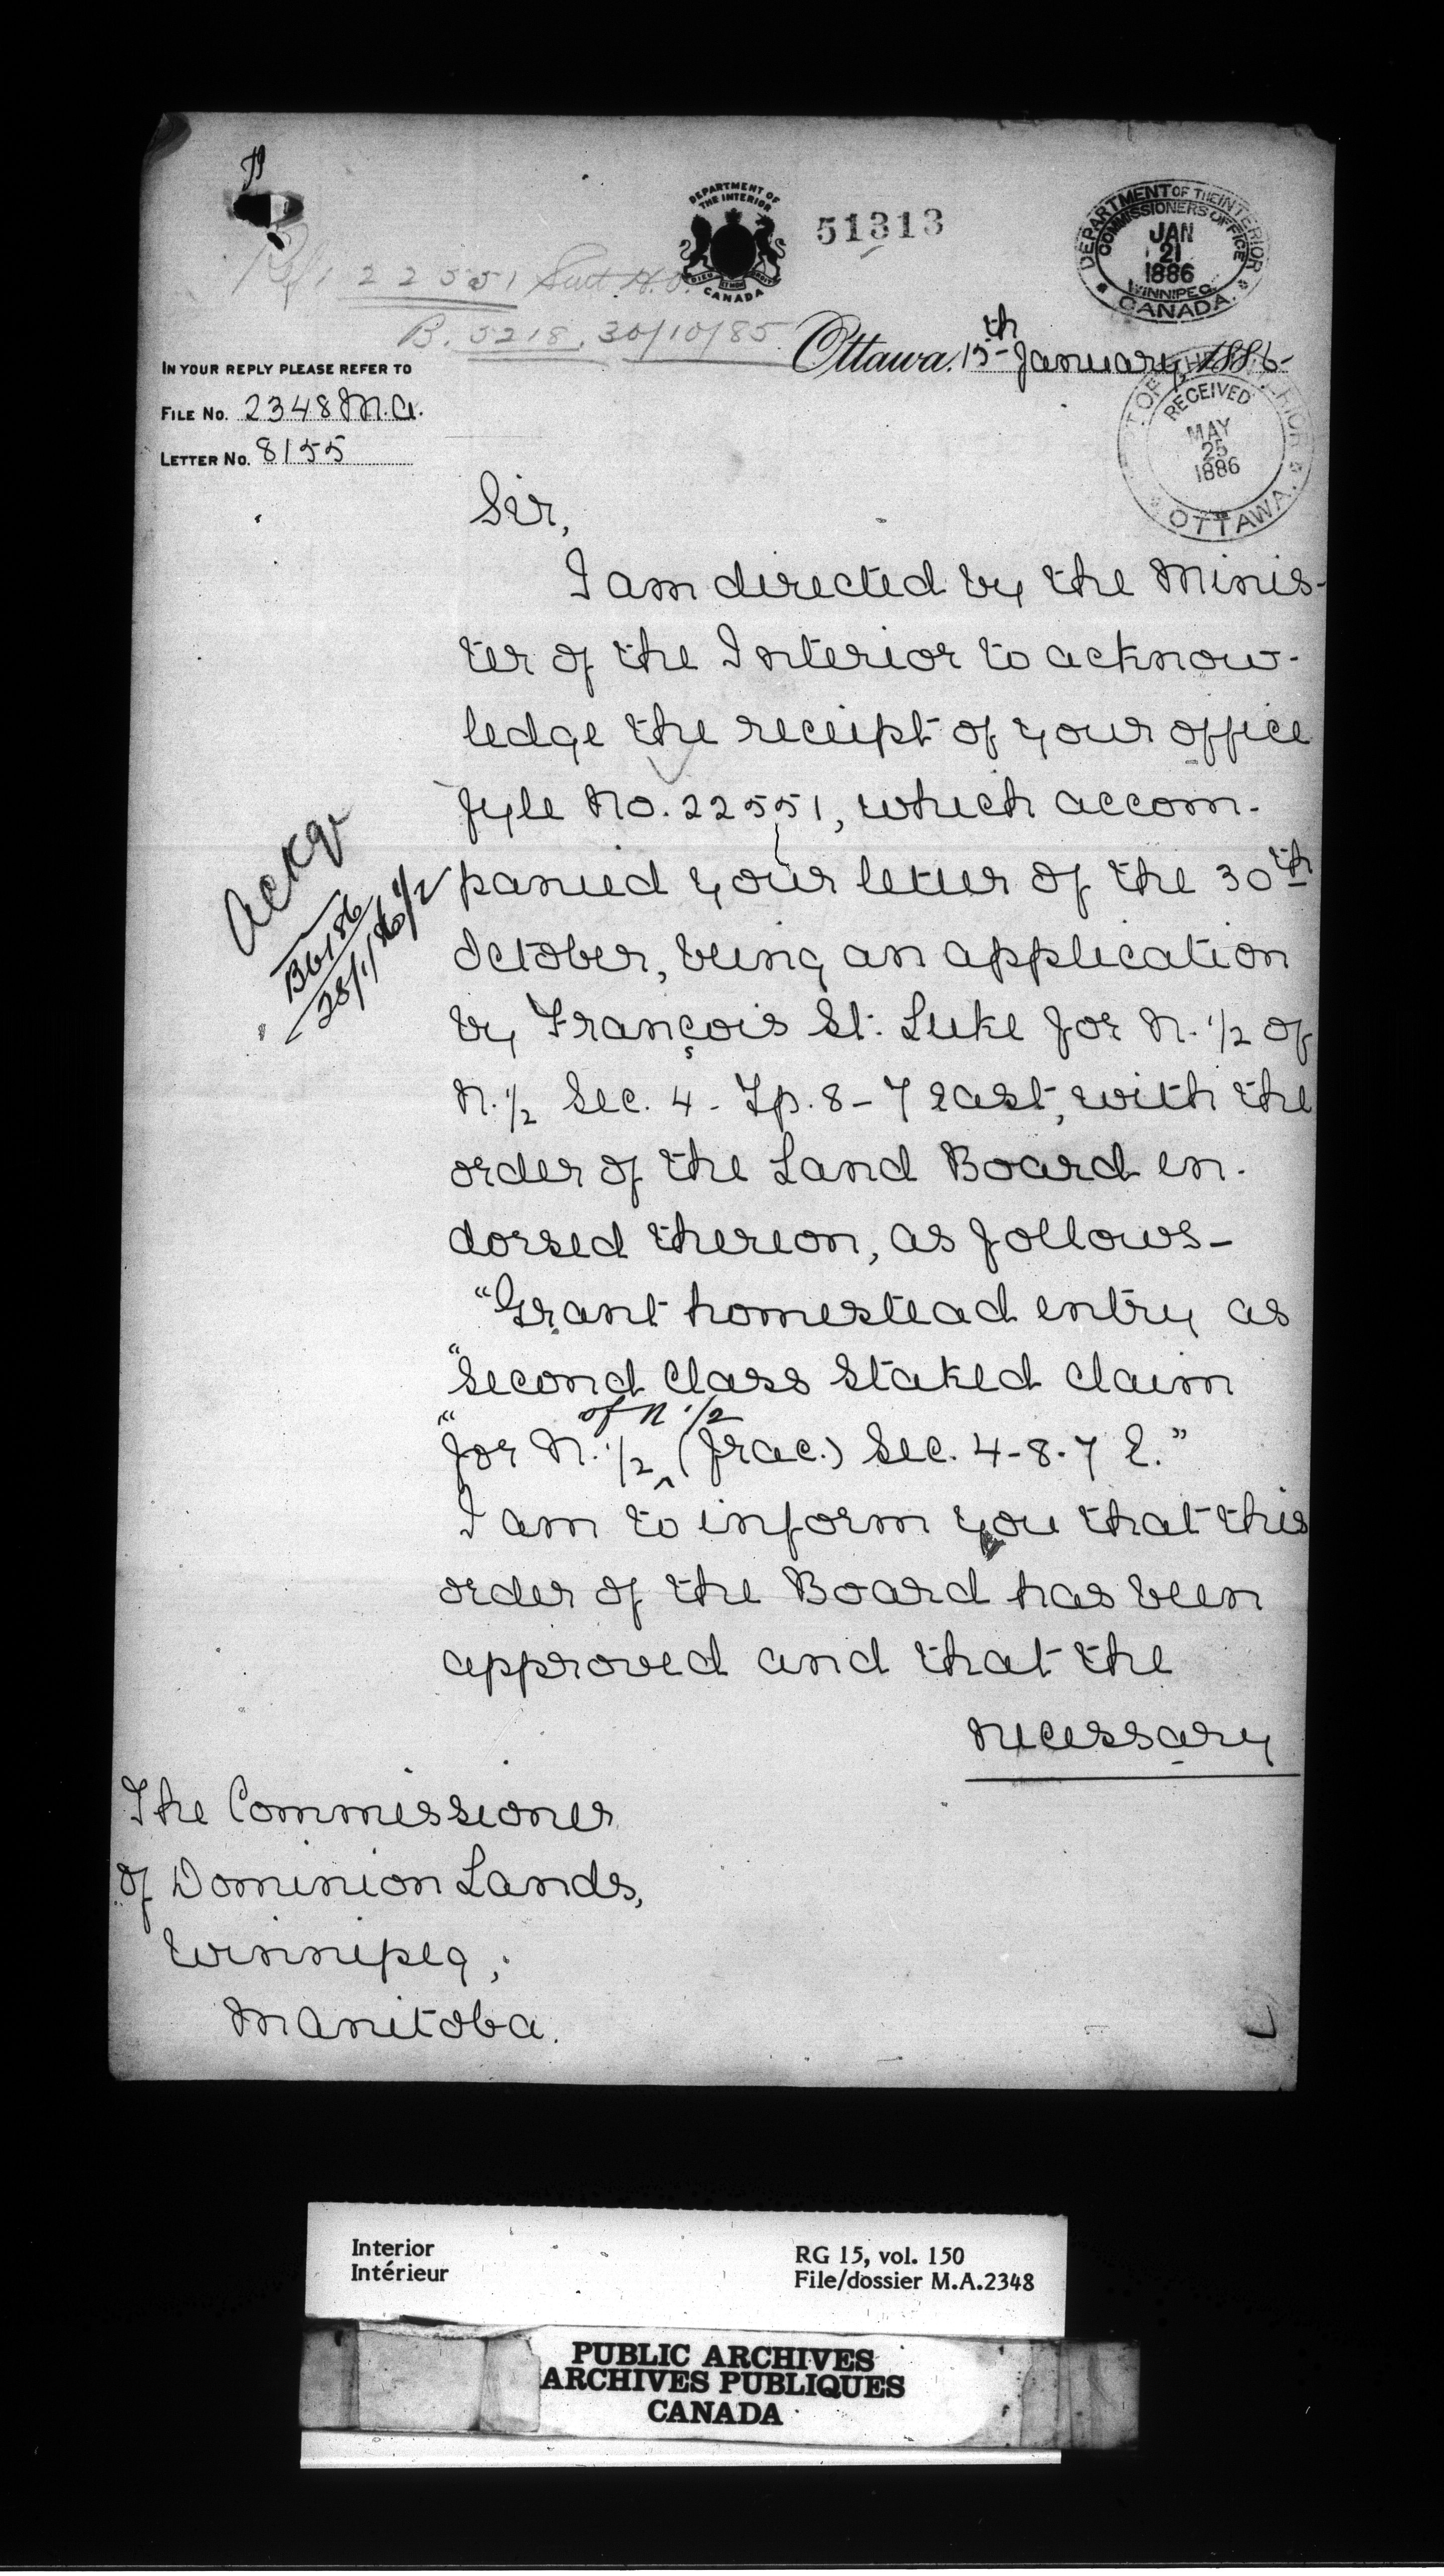 DEPARTMENT OF
THE INTERIOR
CANADA
51313
DEPARTMENT OF THE INTERIOR
COMMISSIONERS OFFICE
JAN
21
1886
WINNIPEG.
CANADA.
22551
B. 5218. 30/10/85
Ottawa. 15th January, 1886-
IN YOUR REPLY PLEASE REFER TO
FILE No. 2348 M.A.
LETTER No. 8155
RECEIVED
MAY
25
1886
OTTAWA.
Sir,
I am directed by the Minis-
ter of the Interior to acknow-
ledge the receipt of your office
fyle No. 22551, which accom-
panied your letter of the 30th
October, being an application
by François St. Luke for N. 1/2 of
N. 1/2 Sec. 4 - Tp. 8 - 7 East, with the
order of the Land Board en-
dorsed thereon, as follows -
"Grant homestead entry as
"second class staked claim
of N 1/2
"for N. 1/2 ^ (frac.) Sec. 4-8-7 E."
I am to inform you that this
order of the Board has been
approved and that the
necessary
Ackg
B6186
28/1/86
The Commissioner
of Dominion Lands,
Winnipeg,
Manitoba.
Interior
Intérieur
RG 15, vol. 150
File/dossier M.A.2348
PUBLIC ARCHIVES
ARCHIVES PUBLIQUES
CANADA